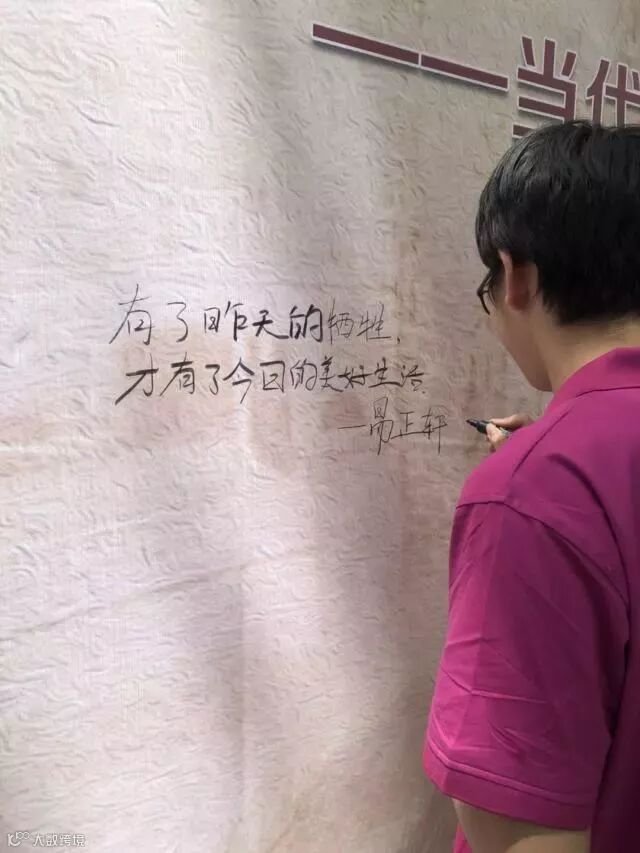 ——当代
有了昨天的牺牲，
才有了今日的美好生活。
—易正轩
大数跨境